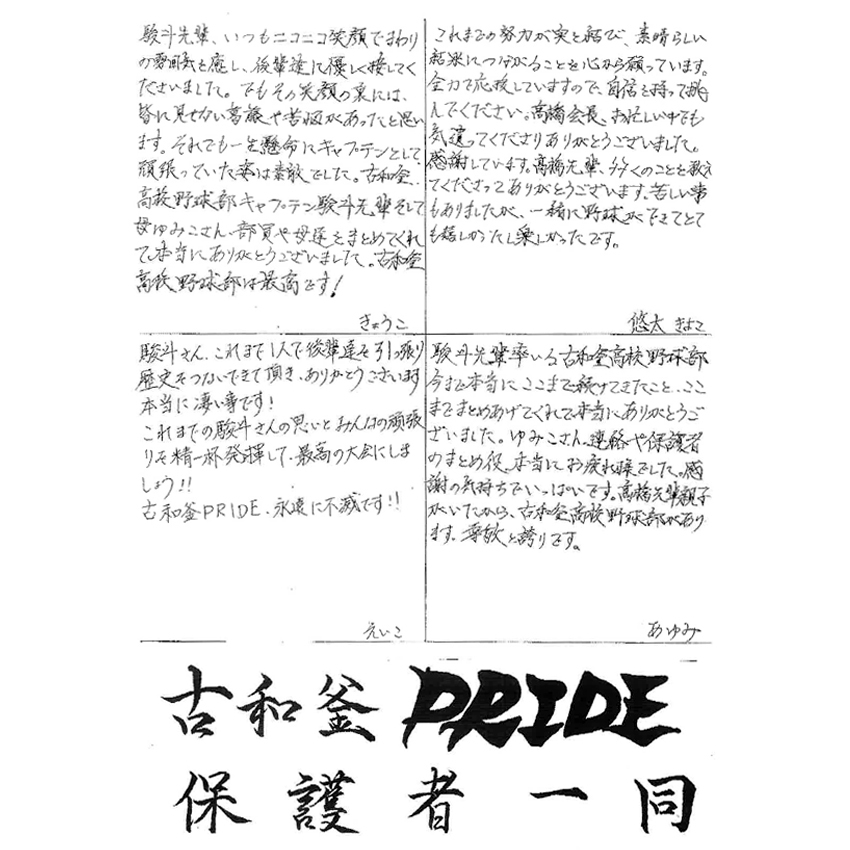 駿斗先輩、いつもニコニコ笑顔でまわり
の雰囲気を癒し、後輩達に優しく接してく
ださいました。でもその笑顔の裏には、
皆に見せない葛藤や苦悩があったと思い
ます。それでも一生懸命にキャプテンとして
頑張っていた姿は素敵でした。古和釜
高校野球部キャプテン駿斗先輩そして
母ゆみこさん、部員や母達をまとめてくれ
て本当にありがとうございました。古和釜
高校野球部は最高です!
きょうこ
これまでの努力が実を結び、素晴らしい
結果につながることを心から願っています。
全力で応援していますので、自信を持って挑
んでください。高橋会長、お忙しい中でも
気遣ってくださりありがとうございました。
感謝しています。高橋先輩、多くのことを教え
てくださってありがとうございます。苦しい事
もありましたが、一緒に野球ができてとて
も嬉しかったし楽しかったです。
悠太 きよこ
駿斗さん、これまで1人で後輩達を引っ張り
歴史をつないできて頂き、ありがとうございます
本当に凄い事です!
これまでの駿斗さんの思いとみんなの頑張
りを精一杯発揮して、最高の大会にしま
しょう!!
古和釜PRIDE、永遠に不滅です!!
えいこ
駿斗先輩率いる古和釜高校野球部
今まで本当に、ここまで続けてきたこと、ここ
までまとめあげてくれて本当にありがとうご
ざいました。ゆみこさん、連絡や保護者
のまとめ役、本当にお疲れ様でした。感
謝の気持ちでいっぱいです。高橋先輩親子
がいたから、古和釜高校野球部があり
ます。尊敬と誇りです。
あゆみ
古和釜PRIDE
保護者一同